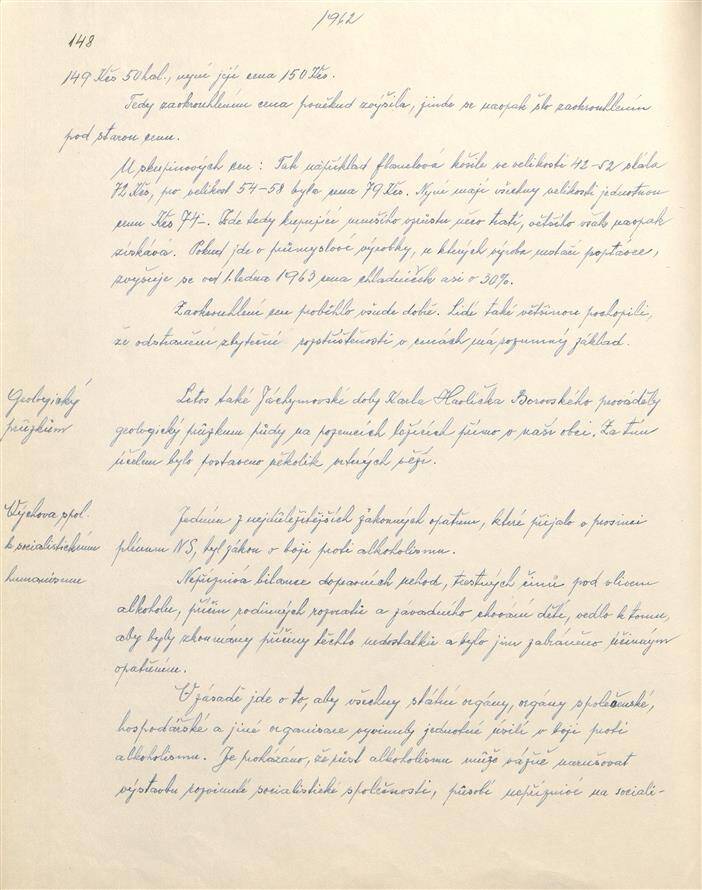 1962
148
149 Kčs 50 hal., nyní její cena 150 Kčs.
Tedy zaokrouhlením cena poněkud zvýšila, jinde se naopak šlo zaokrouhlením
pod starou cenu.
U skupinových cen: Tak například flanelová košile ve velikosti 42-52 stála
72 Kčs, pro velikost 54-58 byla cena 79 Kčs. Nyní mají všechny velikosti jednotnou
cenu Kčs 74.- Zde tedy kupující menšího vzrůstu něco tratí, většího však naopak
získává. Pokud jde o průmyslové výrobky, u kterých výroba nestačí poptávce,
zvyšuje se od 1. ledna 1963 cena chladniček asi o 30%.
Zaokrouhlení cen proběhlo všude dobře. Lidé také většinou pochopili,
že odstranění zbytečné roztříštěnosti v cenách má rozumný základ.
Geologický
průzkum
Letos také Jáchymovské doly Karla Havlíčka Borovského prováděly
geologický průzkum půdy na pozemcích ležících přímo v naší obci. Za tím
účelem bylo postaveno několik vrtných věží.
Výchova spol.
k socialistickému
humanismu
Jedním z nejdůležitějších zákonných opatření, které přijalo v prosinci
plénum NS, byl zákon o boji proti alkoholismu.
Nepříznivá bilance dopravních nehod, trestných činů pod vlivem
alkoholu, příčin rodinných rozvratů a závadného chování dětí, vedlo k tomu,
aby byly zkoumány příčiny těchto nedostatků a bylo jim zabráněno účinným
opatřením.
V zásadě jde o to, aby všechny státní orgány, orgány společenské,
hospodářské a jiné organisace vyvinuly jednotné úsilí v boji proti
alkoholismu. Je prokázáno, že růst alkoholismu může vážně narušovat
výstavbu rozvinuté socialistické společnosti, působí nepříznivě na sociali-